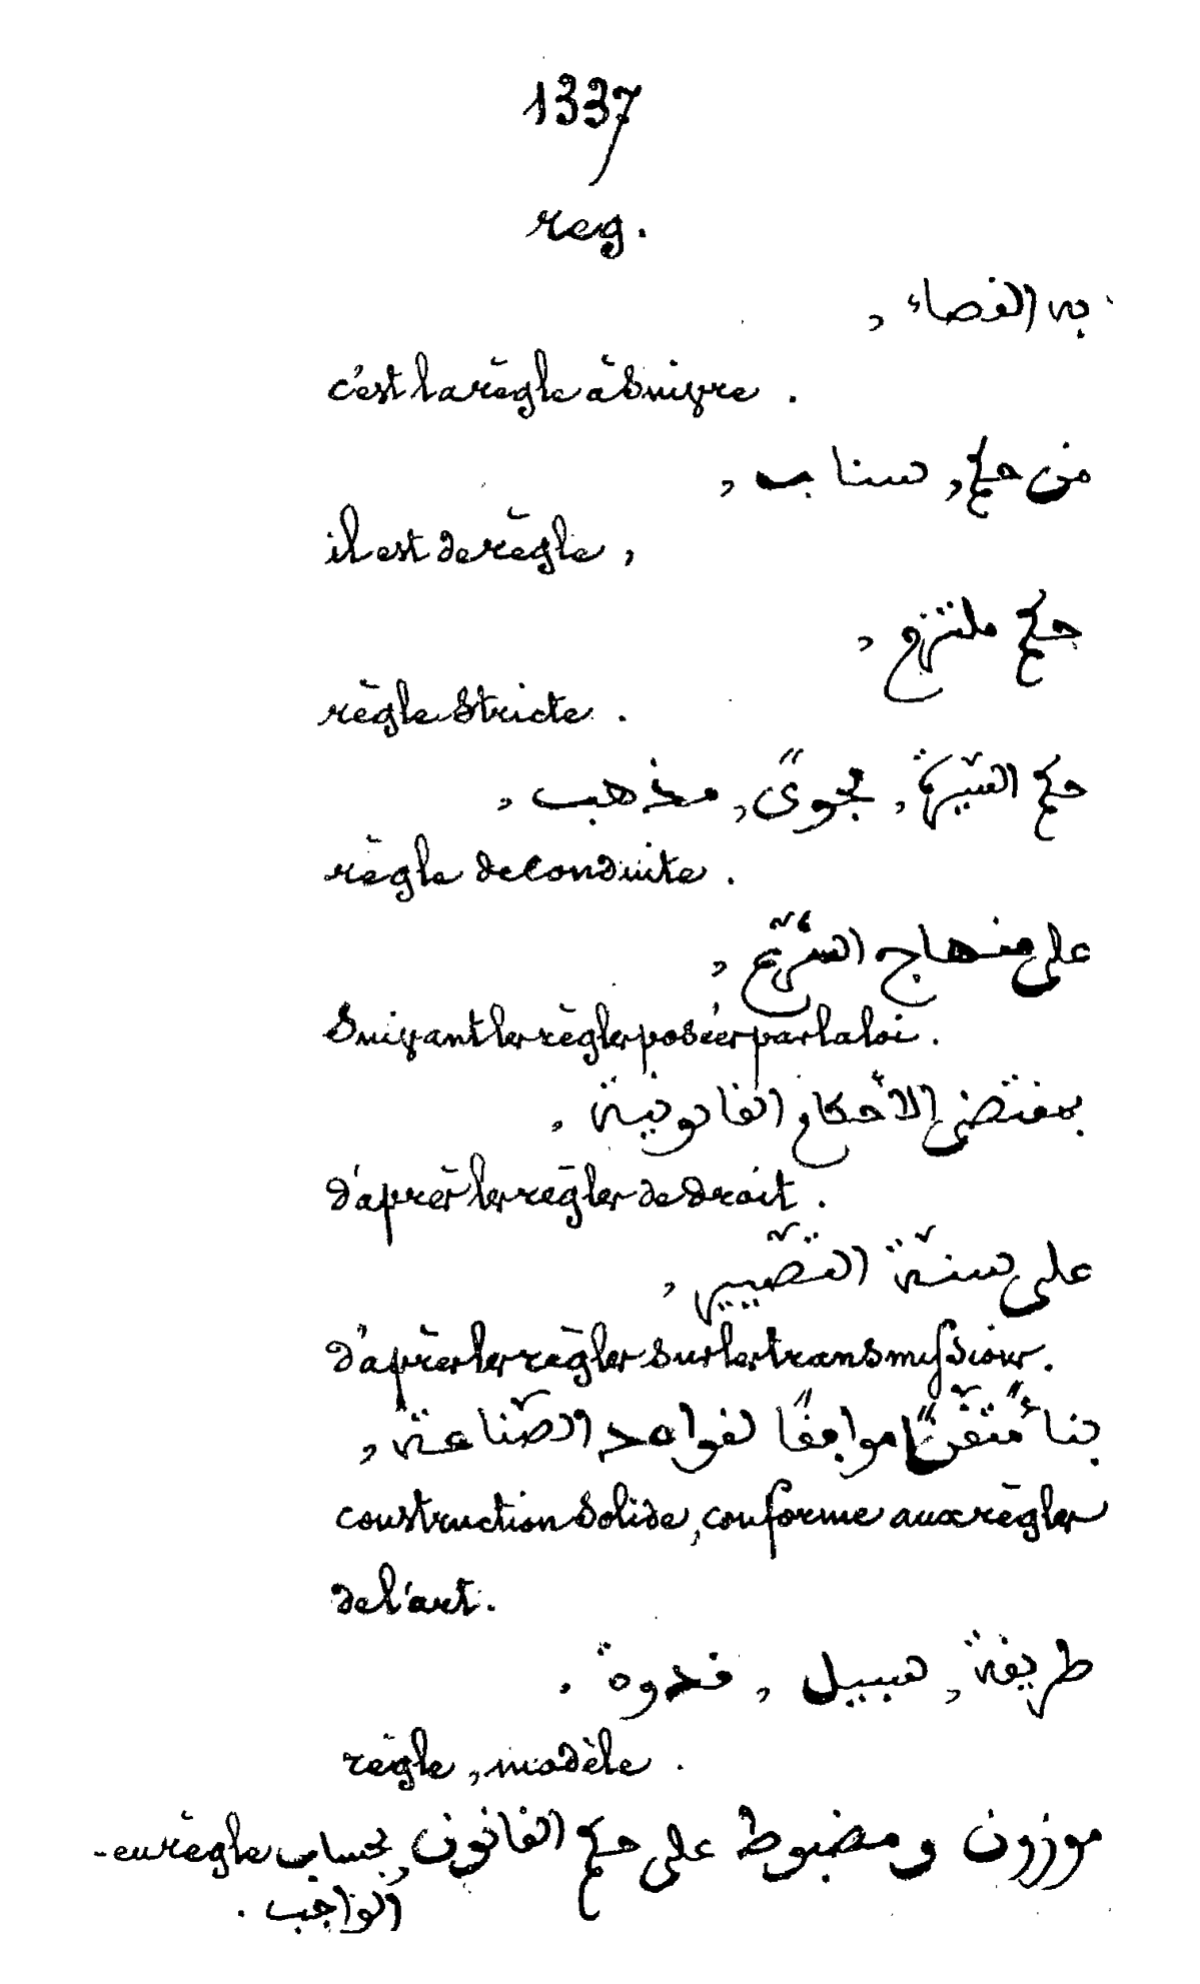 1337
reg.
به القضاء,
c'est la règle à suivre.
من حكم,
il est de règle,
حكم ملتزم,
règle stricte.
حكم السيرة, مذهب,
règle de conduite.
على منهاج الشرع,
Suivant les règles posées par la loi.
بمقتضى الأحكام القانونية,
d'après les règles de droit.
على سنّة
d'après les règles sur les transmissions.
بناءً متقنًا موافقًا لقواعد الصّناعة,
construction solide, conforme aux règles
de l'art.
طريقة, سبيل, قدوة.
règle, modèle.
موزون ومضبوط على حكم القانون, بحساب en règle-
الواجب.